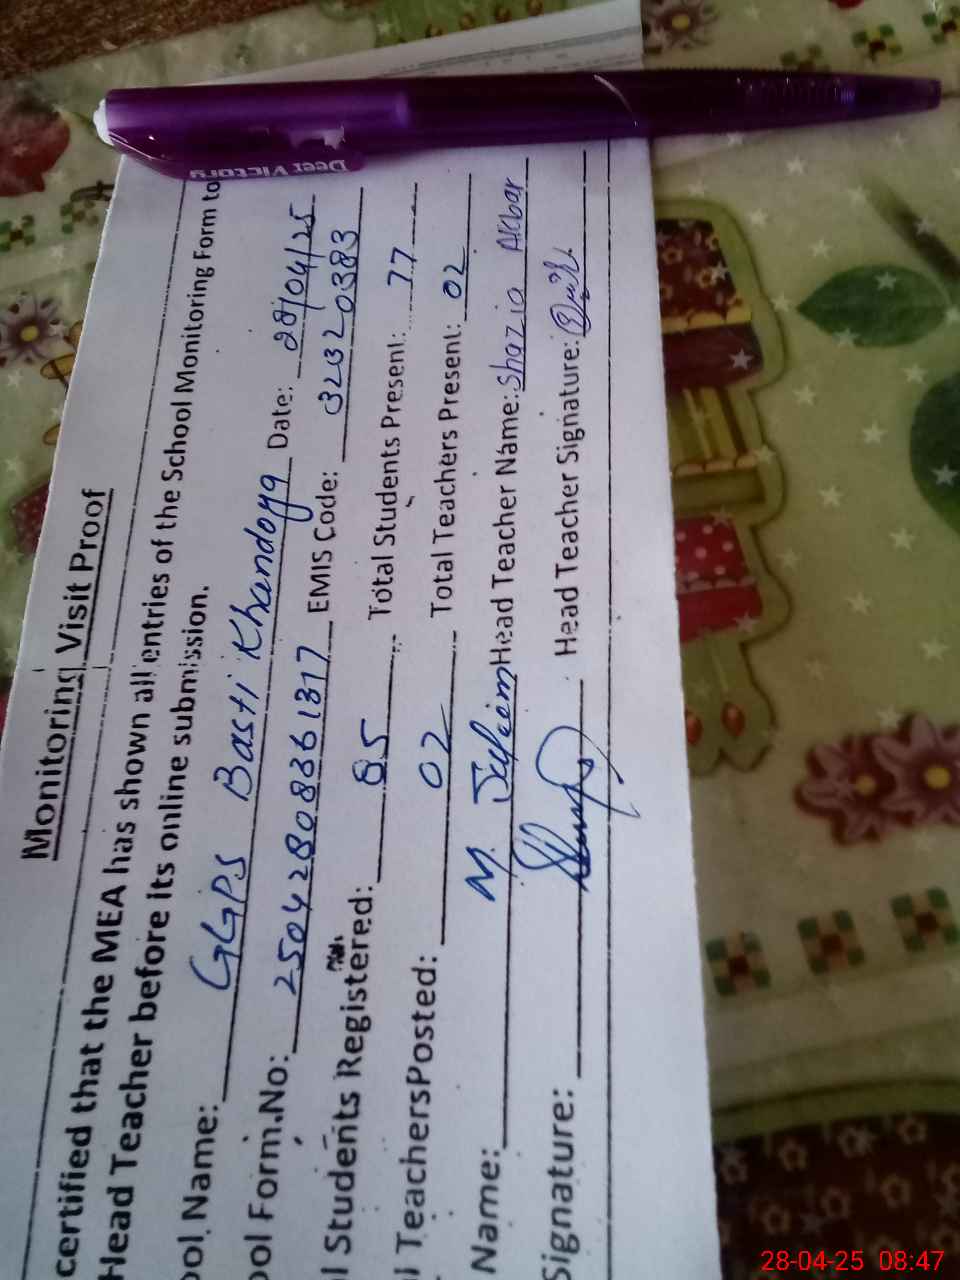 Deer Victory
Monitoring Visit Proof
certified that the MEA has shown all entries of the School Monitoring Form to
Head Teacher before its online submission.
ool Name: GGPS Basti Khandoya Date: 28/04/25
ool Form.No: 250428083361317 EMIS Code: 32320383
l Students Registered: 85 Total Students Present: 77
l TeachersPosted: 02 Total Teachers Present: 02
Name: M. Head Teacher Name: Shazia Akbar
Signature: Head Teacher Signature:
28-04-25 08:47